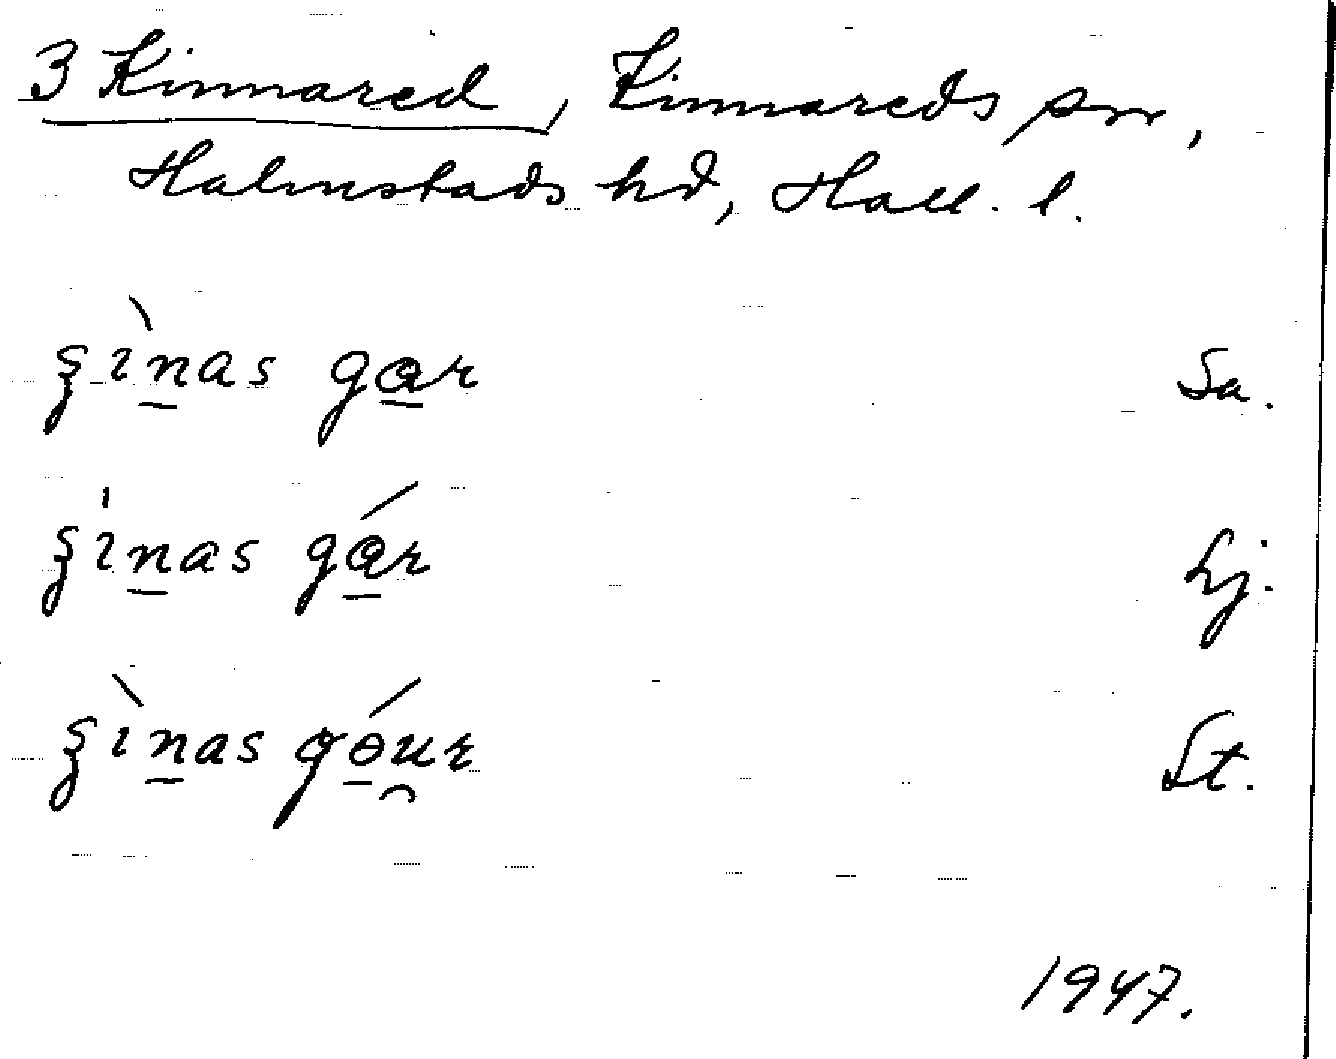 3 Kinnared, Kinnareds sn,
Halmstads hd, Hall. l.
ʂìn̲as ga̲r Sa.
ʂɩ̍n̲as gá̲r Lj.
ʂìn̲as gó̲u̯r St.
1947.